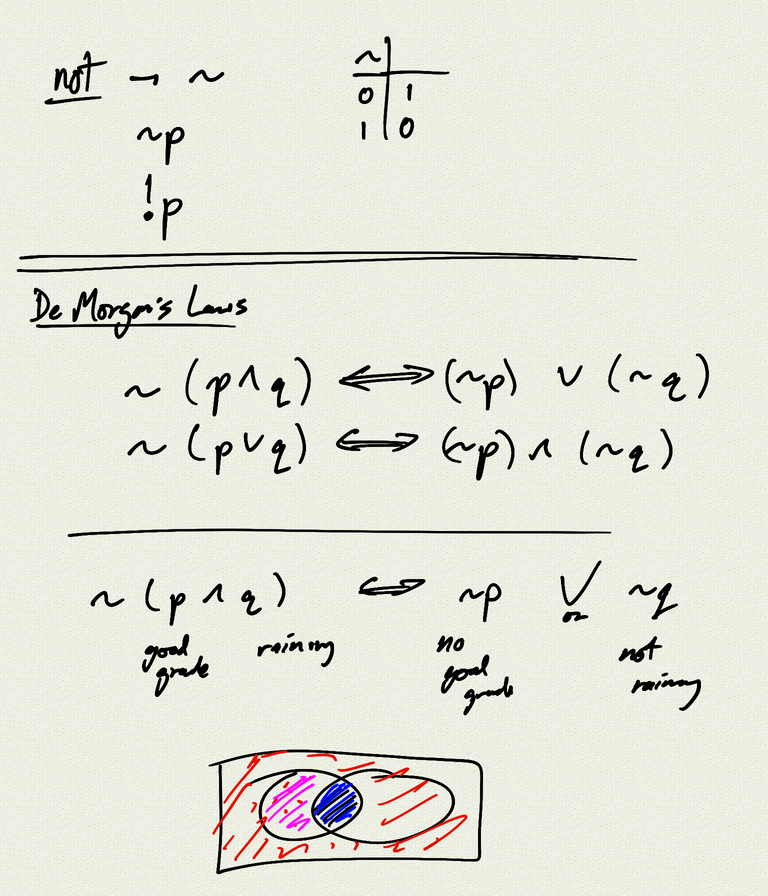 not → ~
~p
!p
~
0 1
1 0
De Morgan's Laws
~ (p ∧ q) ⟺ (~p) ∨ (~q)
~ (p ∨ q) ⟺ (~p) ∧ (~q)
~ (p ∧ q) ⟺ ~p ∨ ~q
or
good grade raining no good grade not raining